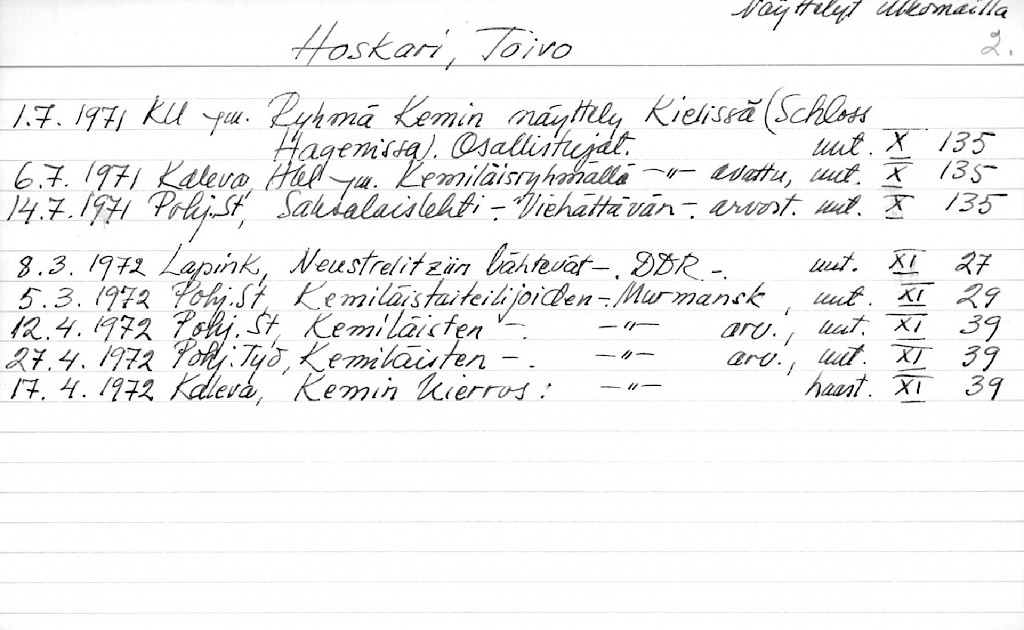 Näyttelyt ulkomailla
2.
Hoskari, Toivo
1.7. 1971 KU ym. Ryhmä Kemin näyttely Kielissä (Schloss
Hagenissa). Osallistujat. uut. X 135
6.7. 1971 Kaleva, Hal ym. Kemiläisryhmällä —"— avattu, uut. X 135
14.7. 1971 Pohj.St, Saksalaislehti -. Viehättävän -. arvost. uut. X 135
8.3. 1972 Lapink, Neustrelitziin lähtevät -. DDR -. uut. XI 27
5.3. 1972 Pohj.St, Kemiläistaiteilijoiden -. Murmansk, uut. XI 29
12.4. 1972 Pohj.St, Kemiläisten -. —"— arv., uut. XI 39
27.4. 1972 Pohj.Työ, Kemiläisten -. —"— arv., uut. XI 39
17.4. 1972 Kaleva, Kemin Kierros: —"— haast. XI 39